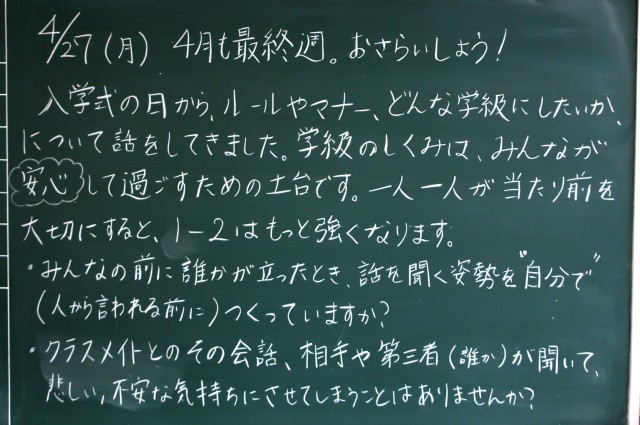 4/27(月) 4月も最終週。おさらいしよう!
入学式の日から、ルールやマナー、どんな学級にしたいか、
について話をしてきました。学級のしくみは、みんなが
安心して過ごすための土台です。一人一人が当たり前を
大切にすると、1-2はもっと強くなります。
・みんなの前に誰かが立ったとき、話を聞く姿勢を"自分で"
(人から言われる前に)つくっていますか?
・クラスメイトとのその会話、相手や第三者(誰か)が聞いて、
悲しい、不安な気持ちにさせてしまうことはありませんか?